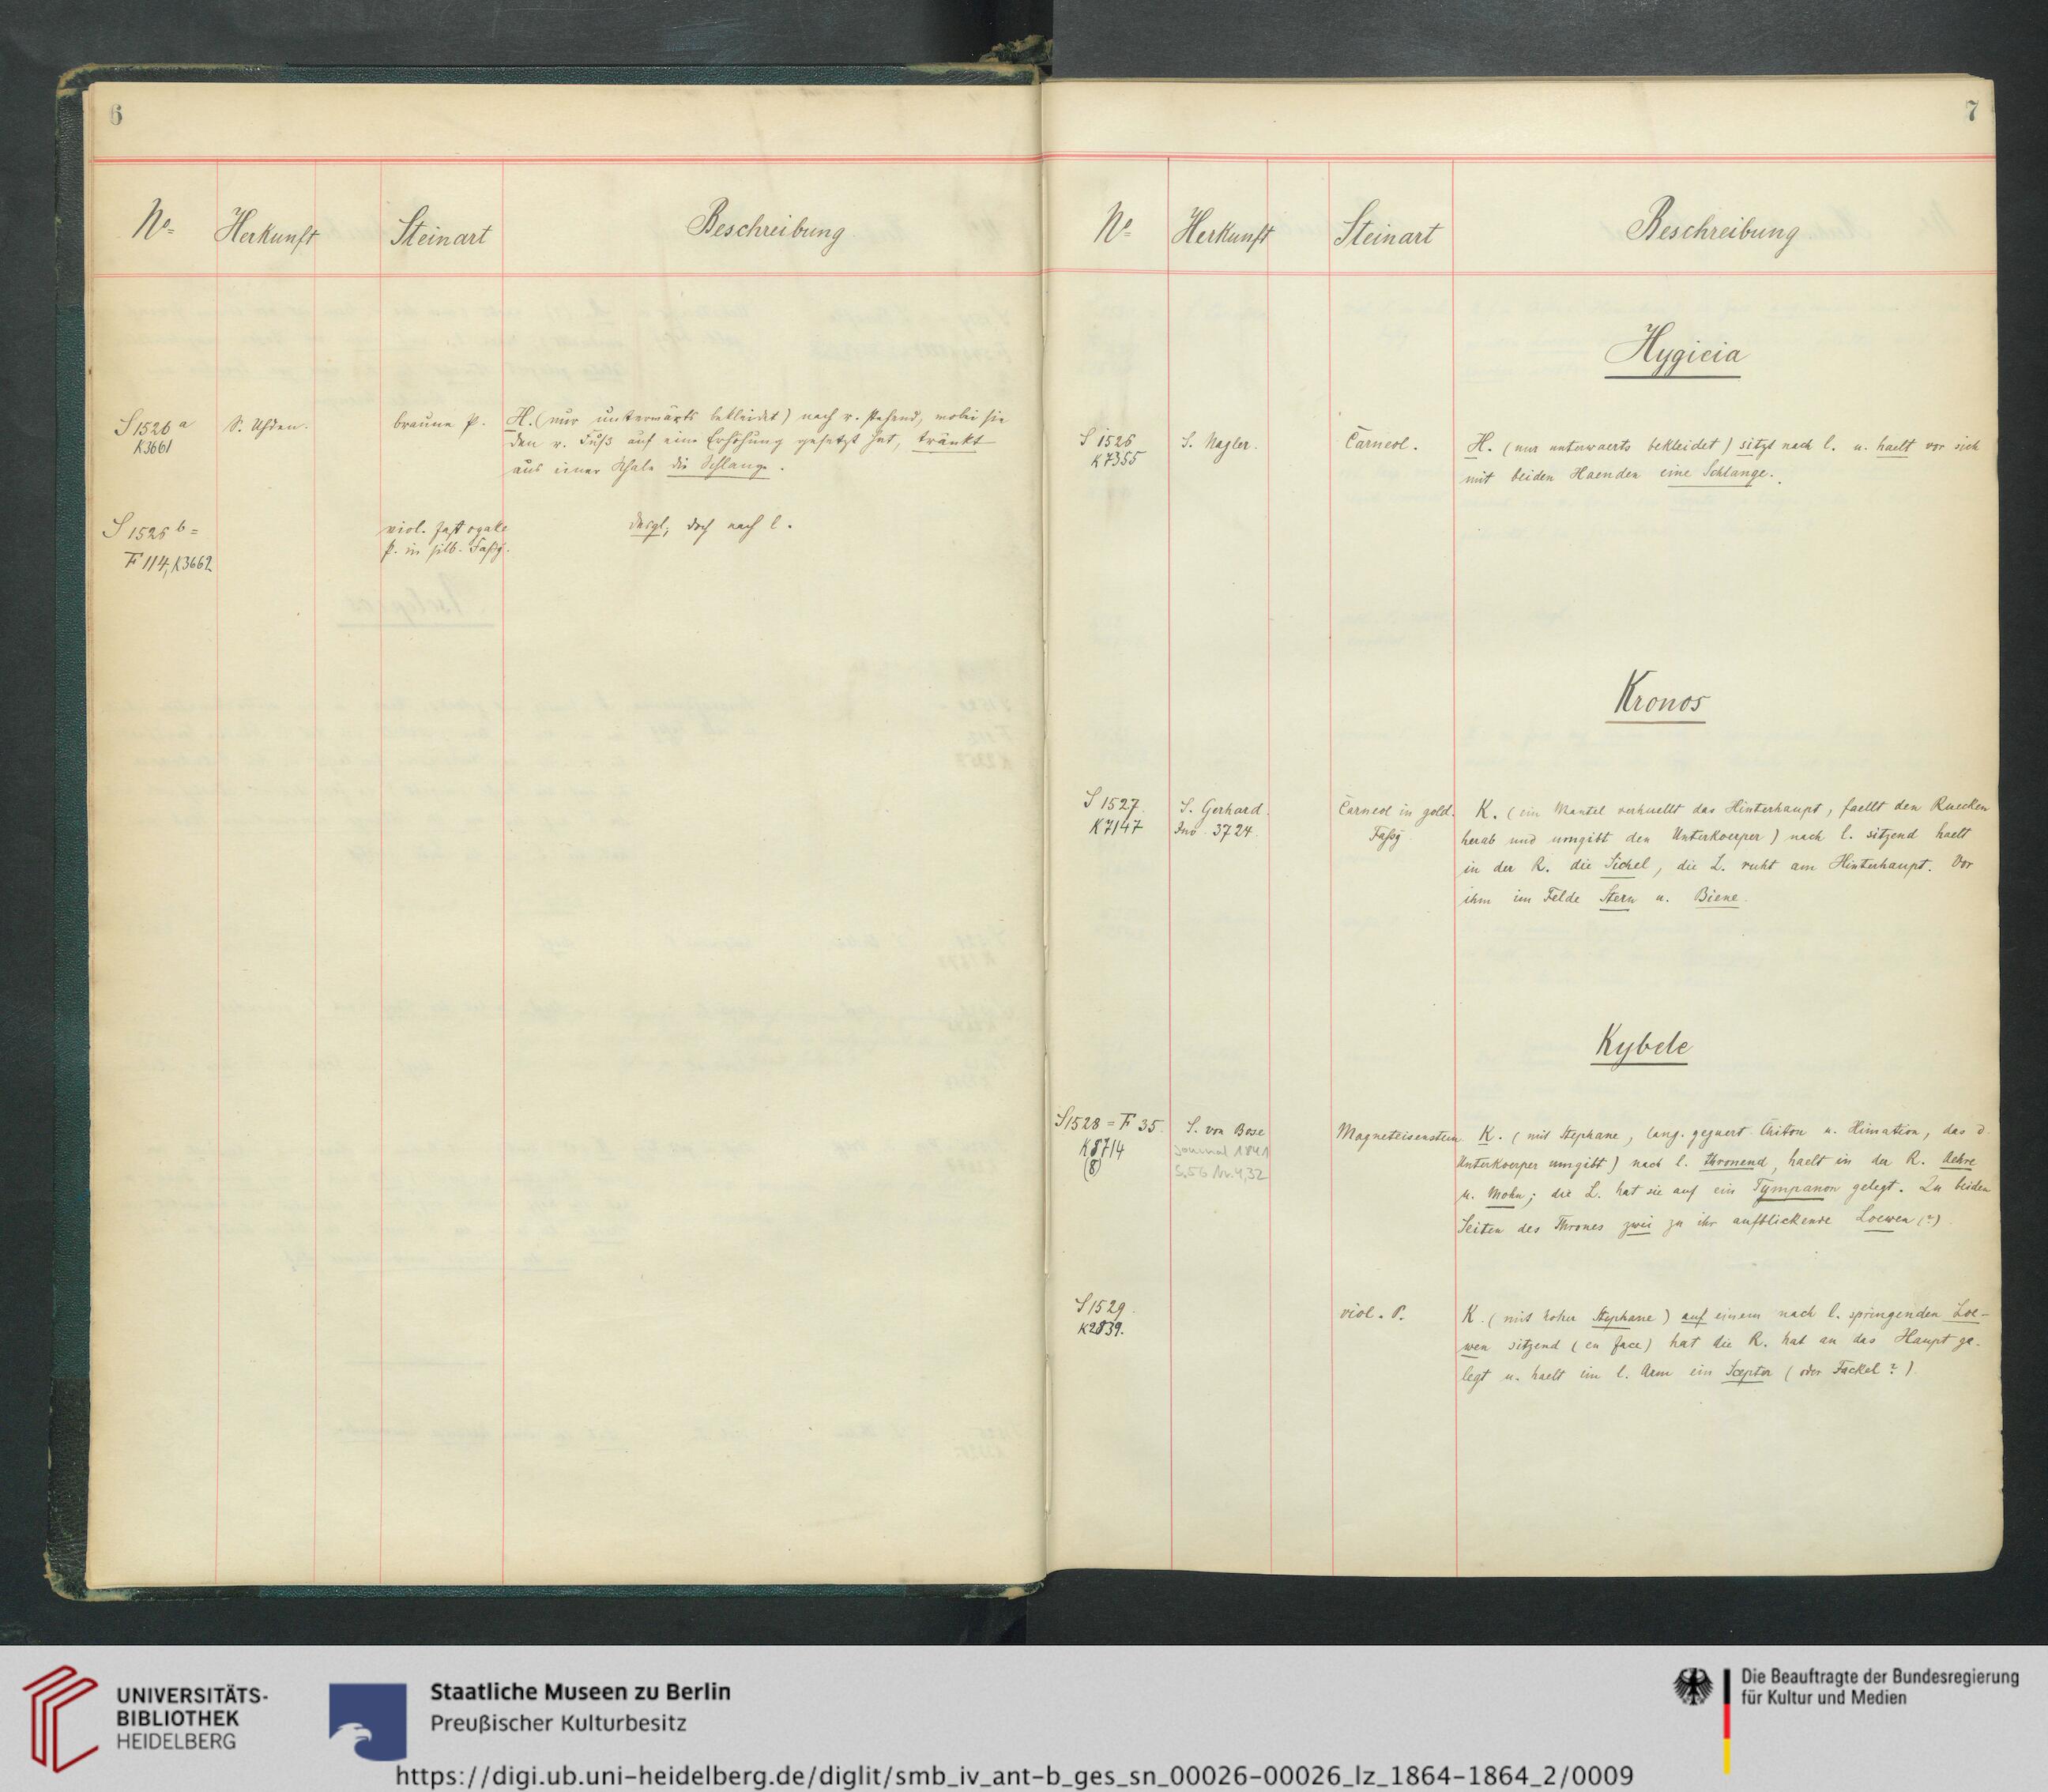 6
No=
Herkunft
Steinart
Beschreibung
S 1526 a
K3661
S. Uhden.
braune P.
H. (nur unterwärts bekleidet) nach r. stehend, wobei sie
den r. Fuß auf eine Erhöhung gesetzt hat, tränkt
aus einer Schale die Schlange.
S 1526 b =
F 114, K3662
viol. fast ovale
P. in silb. Faßg.
desgl; doch nach l.
7
No=
Herkunft
Steinart
Beschreibung
Hygieia
S 1526
K 7355
S. Nagler.
Carneol.
H. (nur unterwaerts bekleidet) sitzt nach l. u. haelt vor sich
mit beiden Haenden eine Schlange.
Kronos
S 1527
K 7147
S. Gerhard.
Inv. 3724.
Carneol in gold.
Faßg
K. (ein Mantel verhuellt das Hinterhaupt, faellt den Ruecken
herab und umgibt den Unterkoerper) nach l. sitzend haelt
in der R. die Sichel, die L. ruht am Hinterhaupt. Vor
ihm im Felde Stern u. Biene.
Kybele
S 1528 = F 35.
K 8714
(8)
S. von Bose
Journal 1841
S.56 Nr. 4,32
Magneteisenstein
K. (mit Stephane, lang. geguert. Chiton u. Himation, das d.
Unterkoerper umgibt) nach l. thronend, haelt in der R. Aehre
u. Mohn; die L. hat sie auf ein Tympanon gelegt. Zu beiden
Seiten des Thrones zwei zu ihr aufblickende Loewen (?)
S 1529.
K2839.
viol. P.
K. (mit hoher Stephane) auf einem nach l. springenden Loe-
wen sitzend (en face) hat die R. hat an das Haupt ge-
legt u. haelt im l. Arm ein Scepter (oder Fackel?).
UNIVERSITÄTS-
BIBLIOTHEK
HEIDELBERG
Staatliche Museen zu Berlin
Preußischer Kulturbesitz
Die Beauftragte der Bundesregierung
für Kultur und Medien
https://digi.ub.uni-heidelberg.de/diglit/smb_iv_ant-b_ges_sn_00026-00026_lz_1864-1864_2/0009